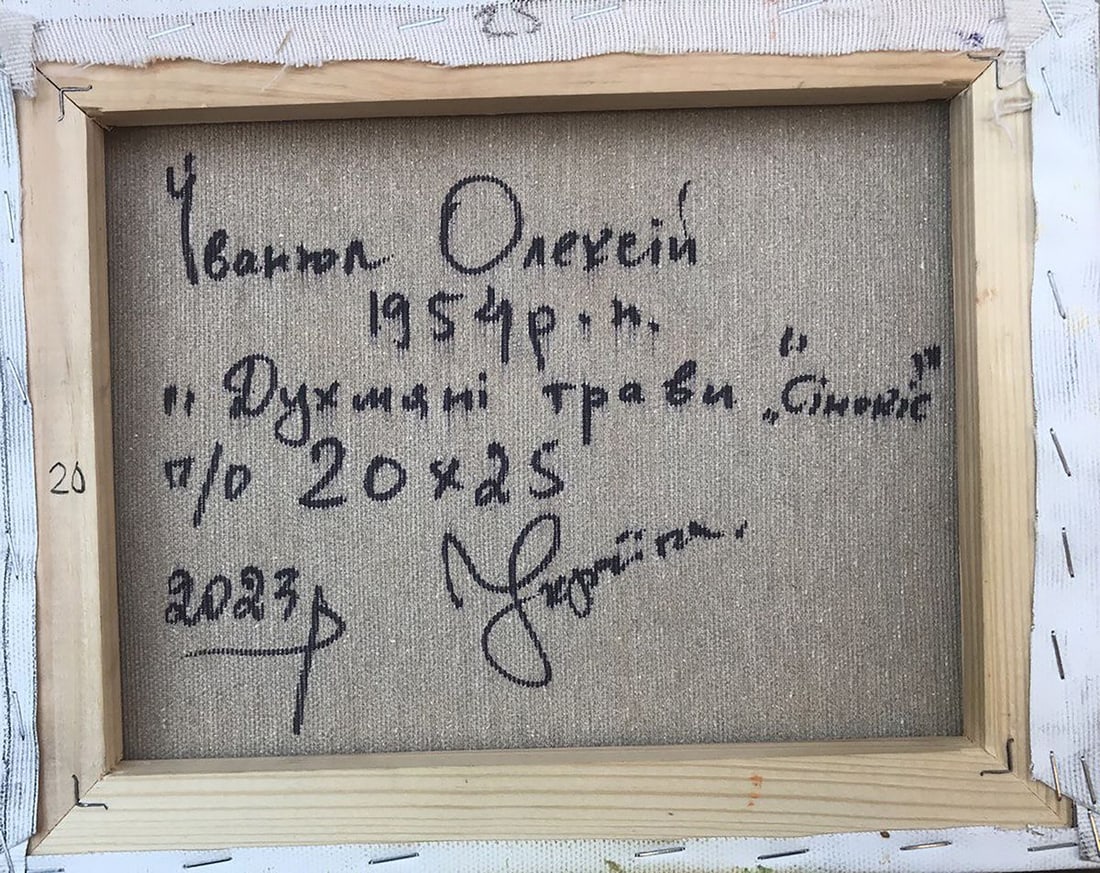 25
Іванюл Олексій
1954 р. н.
"Духмяні трави" „Сінокіс"
20
п/о 20х25
2023р
Україна.